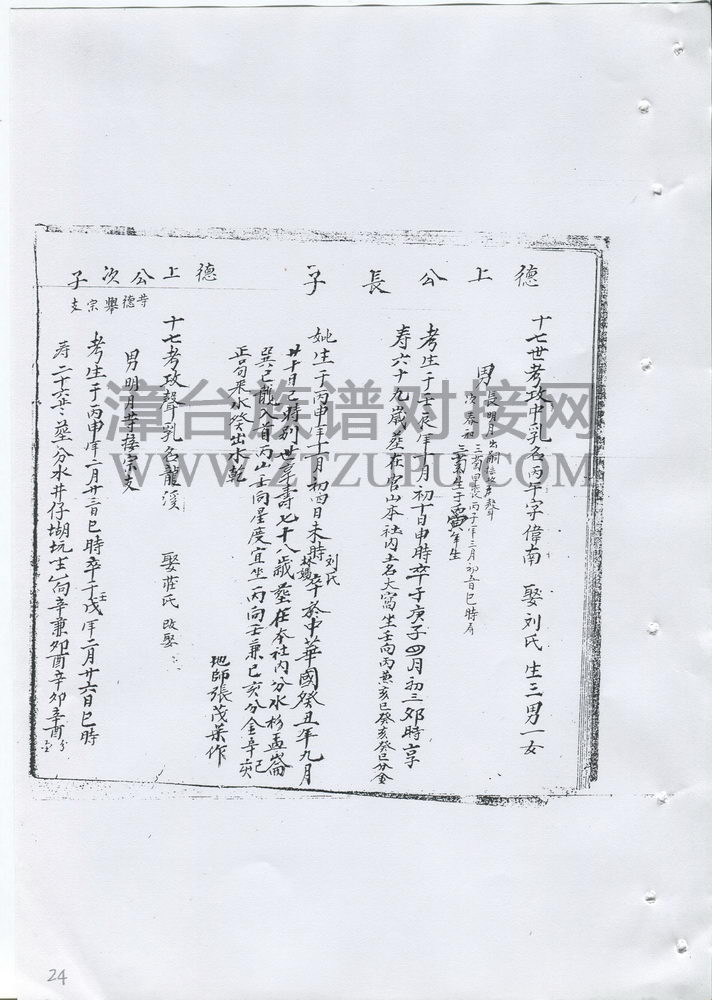 德上公長子
十七世考攻中乳名丙午字偉南 娶刘氏 生三男一女
男 長明月出嗣接攻声
次春和
三菊里長丙子年三月初五日巳時
三菊生于寅年生
考生于壬辰年十月初十日申時卒于庚子四月初三夘時享
寿六十九歲葬在官山本社内土名大窩坐壬向丙兼亥巳癸亥癸巳分金
妣生于丙申年十一月初四日未時刘氏 卒於中華國癸丑年九月
廿十日巳時别世享壽七十八歲葬在本社内分水杉孟崙
巽巳龍入首丙山壬向星度宜坐丙向壬兼巳亥分金辛巳辛亥
正局来水癸出水乾
地師張茂葉作
德上公次子
昔德舉宗支
十七考攻聲乳名龍溪 娶莊氏 改娶
男明月昔接宗支
考生于丙申年一月廿三日巳時卒于壬戌年二月廿六日巳時
寿二十
葬分水井仔堋坑
向辛兼夘酉辛夘辛酉分金
漳台族谱对接网
WWW.ZTZUPU.COM
24